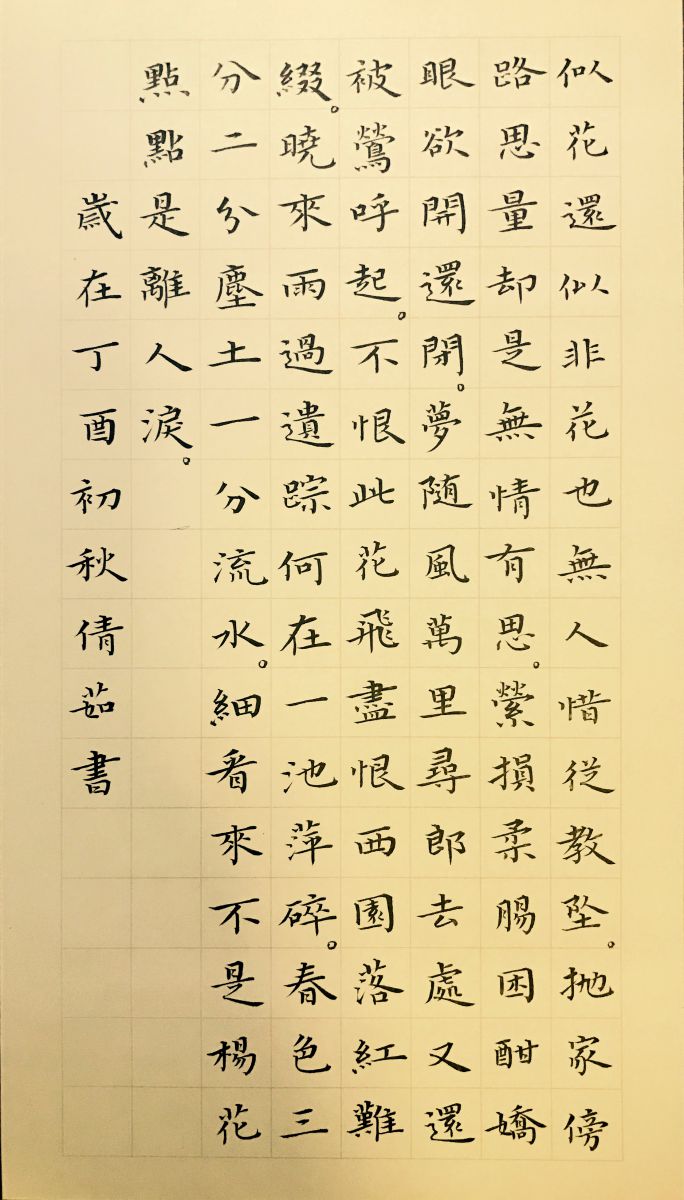 似花還似非花也無人惜從教墜。抛家傍
路思量却是無情有思。縈損柔腸困酣嬌
眼欲開還閉。夢随風萬里尋郎去處又還
被鶯呼起。不恨此花飛盡恨西園落紅難
綴。曉來雨過遺踪何在一池萍碎。春色三
分二分塵土一分流水。細看來不是楊花
點點是離人淚。
歲在丁酉初秋倩茹書